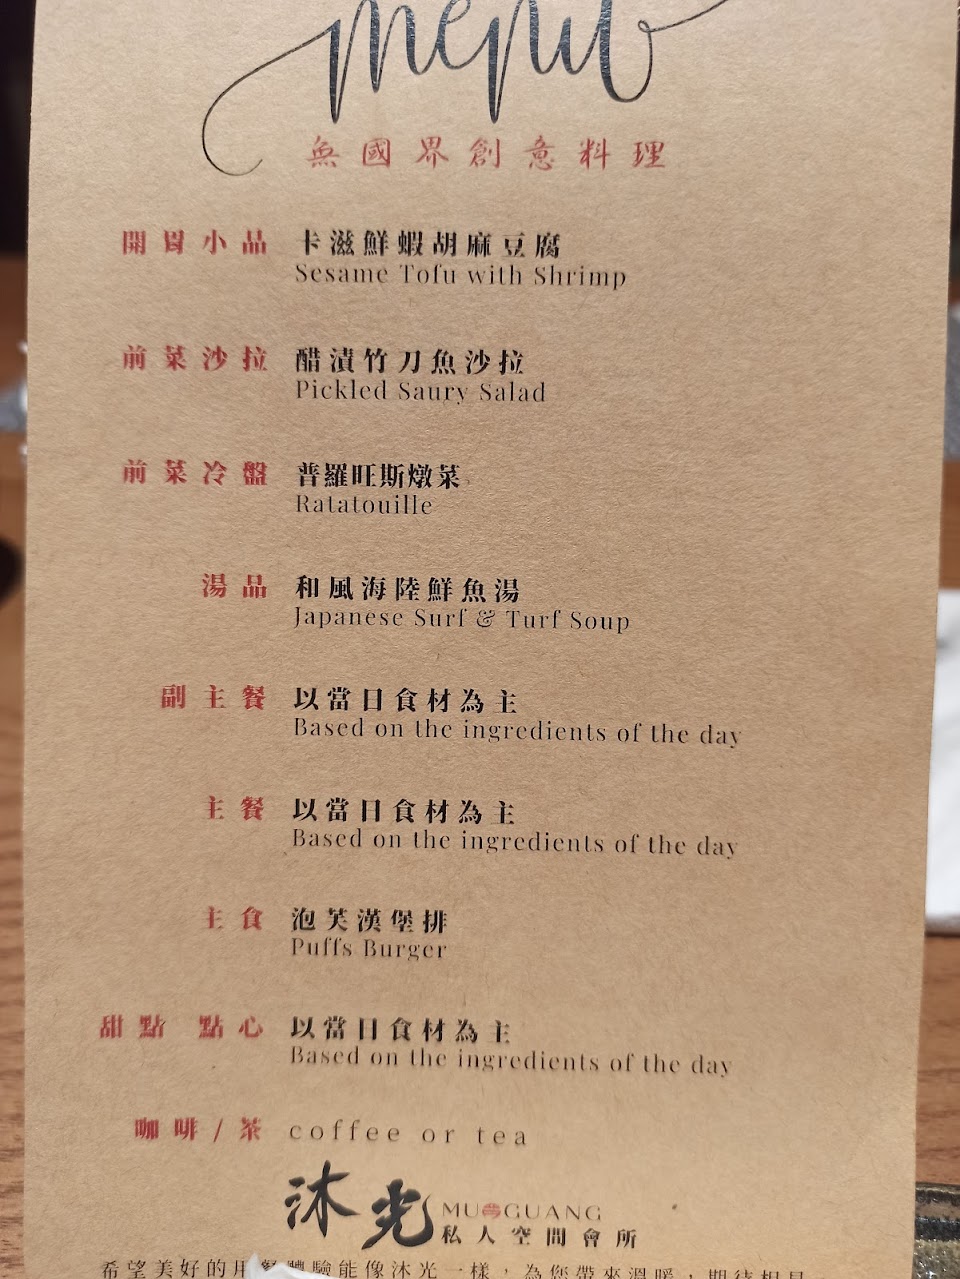 menu
無國界創意料理
開胃小品 卡滋鮮蝦胡麻豆腐
Sesame Tofu with Shrimp
前菜沙拉 醋漬竹刀魚沙拉
Pickled Saury Salad
前菜冷盤 普羅旺斯燉菜
Ratatouille
湯品 和風海陸鮮魚湯
Japanese Surf & Turf Soup
副主餐 以當日食材為主
Based on the ingredients of the day
主餐 以當日食材為主
Based on the ingredients of the day
主食 泡芙漢堡排
Puffs Burger
甜點 點心 以當日食材為主
Based on the ingredients of the day
咖啡/茶 coffee or tea
沐光 MUGUANG
私人空間會所
希望美好的用餐體驗能像沐光一樣，為您帶來溫暖，期待相見